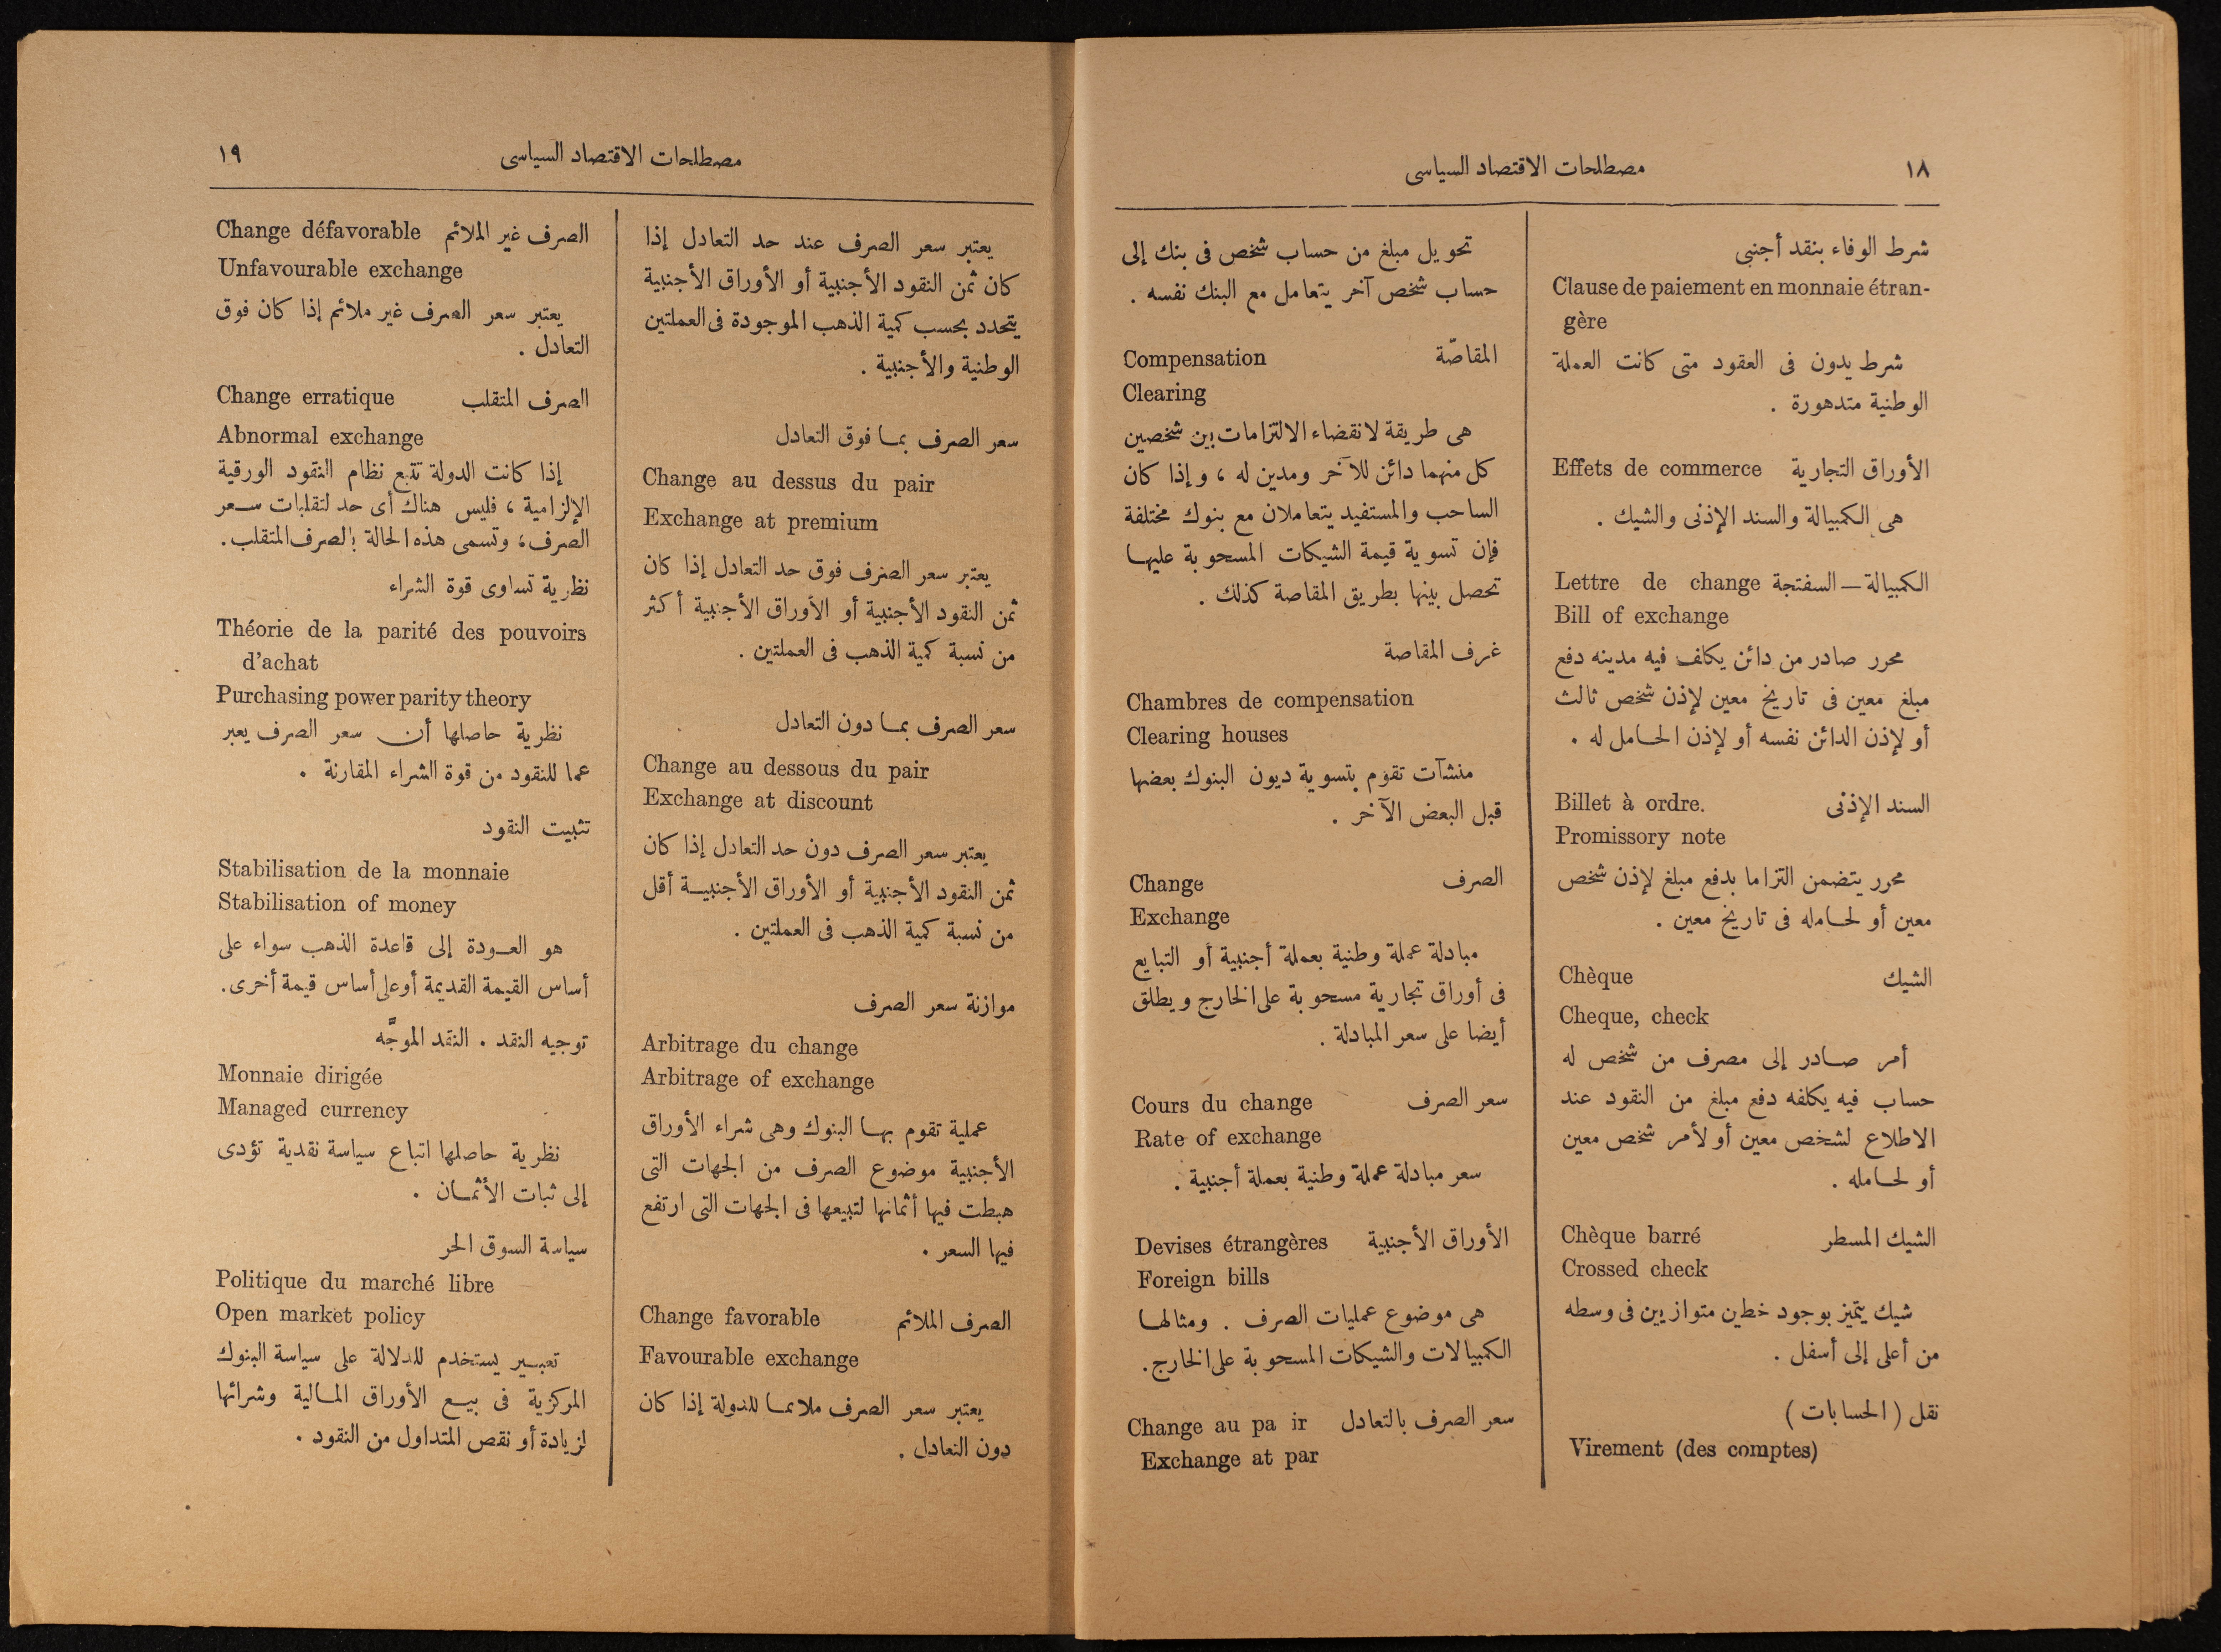 ١٨
مصطلحات الاقتصاد السياسى
شرط الوفاء بنقد أجنبى
Clause de paiement en monnaie étran-
gère
شرط يدون فى العقود متى كانت العملة
الوطنية متدهورة .
الأوراق التجارية Effets de commerce
هى الكمبيالة والسند الإذنى والشيك .
الكمبيالة — السفتجة Lettre de change
Bill of exchange
محرر صادر من دائن يكلف فيه مدينه دفع
مبلغ معين فى تاريخ معين لإذن شخص ثالث
أو لإذن الدائن نفسه أو لإذن الحامل له .
السند الإذنى Billet à ordre.
Promissory note
محرر يتضمن التزاما بدفع مبلغ لإذن شخص
معين أو لحامله فى تاريخ معين .
الشيك Chèque
Cheque, check
أمر صادر إلى مصرف من شخص له
حساب فيه يكلفه دفع مبلغ من النقود عند
الاطلاع لشخص معين أو لأمر شخص معين
أو لحامله .
الشيك المسطر Chèque barré
Crossed check
شيك يتميز بوجود خطين متوازيين فى وسطه
من أعلى إلى أسفل .
نقل ( الحسابات )
Virement (des comptes)
تحويل مبلغ من حساب شخص فى بنك إلى
حساب شخص آخر يتعامل مع البنك نفسه .
المقاصّة Compensation
Clearing
هى طريقة لانقضاء الالتزامات بين شخصين
كل منهما دائن للآخر ومدين له ، وإذا كان
الساحب والمستفيد يتعاملان مع بنوك مختلفة
فإن تسوية قيمة الشيكات المسحوبة عليها
تحصل بينها بطريق المقاصة كذلك .
غرف المقاصة
Chambres de compensation
Clearing houses
منشآت تقوم بتسوية ديون البنوك بعضها
قبل البعض الآخر .
الصرف Change
Exchange
مبادلة عملة وطنية بعملة أجنبية أو التبايع
فى أوراق تجارية مسحوبة على الخارج ويطلق
أيضا على سعر المبادلة .
سعر الصرف Cours du change
Rate of exchange
سعر مبادلة عملة وطنية بعملة أجنبية .
الأوراق الأجنبية Devises étrangères
Foreign bills
هى موضوع عمليات الصرف . ومثالها
الكمبيالات والشيكات المسحوبة على الخارج .
سعر الصرف بالتعادل Change au pa ir
Exchange at par
مصطلحات الاقتصاد السياسى
١٩
يعتبر سعر الصرف عند حد التعادل إذا
كان ثمن النقود الأجنبية أو الأوراق الأجنبية
يتحدد بحسب كمية الذهب الموجودة فى العملتين
الوطنية والأجنبية .
سعر الصرف بما فوق التعادل
Change au dessus du pair
Exchange at premium
يعتبر سعر الصرف فوق حد التعادل إذا كان
ثمن النقود الأجنبية أو الأوراق الأجنبية أكثر
من نسبة كمية الذهب فى العملتين .
سعر الصرف بما دون التعادل
Change au dessous du pair
Exchange at discount
يعتبر سعر الصرف دون حد التعادل إذا كان
ثمن النقود الأجنبية أو الأوراق الأجنبية أقل
من نسبة كمية الذهب فى العملتين .
موازنة سعر الصرف
Arbitrage du change
Arbitrage of exchange
عملية تقوم بها البنوك وهى شراء الأوراق
الأجنبية موضوع الصرف من الجهات التى
هبطت فيها أثمانها لتبيعها فى الجهات التى ارتفع
فيها السعر .
الصرف الملائم Change favorable
Favourable exchange
يعتبر سعر الصرف ملائما للدولة إذا كان
دون التعادل .
الصرف غير الملائم Change défavorable
Unfavourable exchange
يعتبر سعر الصرف غير ملائم إذا كان فوق
التعادل .
الصرف المتقلب Change erratique
Abnormal exchange
إذا كانت الدولة تتبع نظام النقود الورقية
الإلزامية ، فليس هناك أى حد لتقلبات سعر
الصرف ، وتسمى هذه الحالة بالصرف المتقلب .
نظرية تساوى قوة الشراء
Théorie de la parité des pouvoirs
d'achat
Purchasing power parity theory
نظرية حاصلها أن سعر الصرف يعبر
عما للنقود من قوة الشراء المقارنة .
تثبيت النقود
Stabilisation de la monnaie
Stabilisation of money
هو العودة إلى قاعدة الذهب سواء على
أساس القيمة القديمة أو على أساس قيمة أخرى .
توجيه النقد . النقد الموجَّه
Monnaie dirigée
Managed currency
نظرية حاصلها اتباع سياسة نقدية تؤدى
إلى ثبات الأثمان .
سياسة السوق الحر
Politique du marché libre
Open market policy
تعبير يستخدم للدلالة على سياسة البنوك
المركزية فى بيع الأوراق المالية وشرائها
لزيادة أو نقص المتداول من النقود .